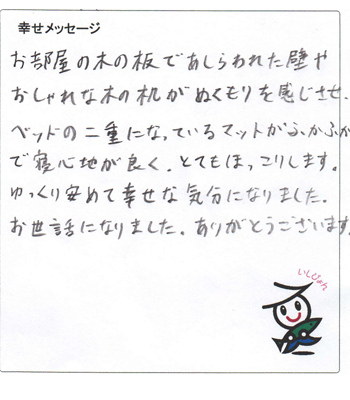 幸せメッセージ
お部屋の木の板であしらわれた壁や
おしゃれな木の机がぬくもりを感じさせ、
ベッドの二重になっているマットがふかふか
で寝心地が良く、とてもほっこりします。
ゆっくり安めて幸せな気分になりました。
お世話になりました。ありがとうございます
いしぴょん